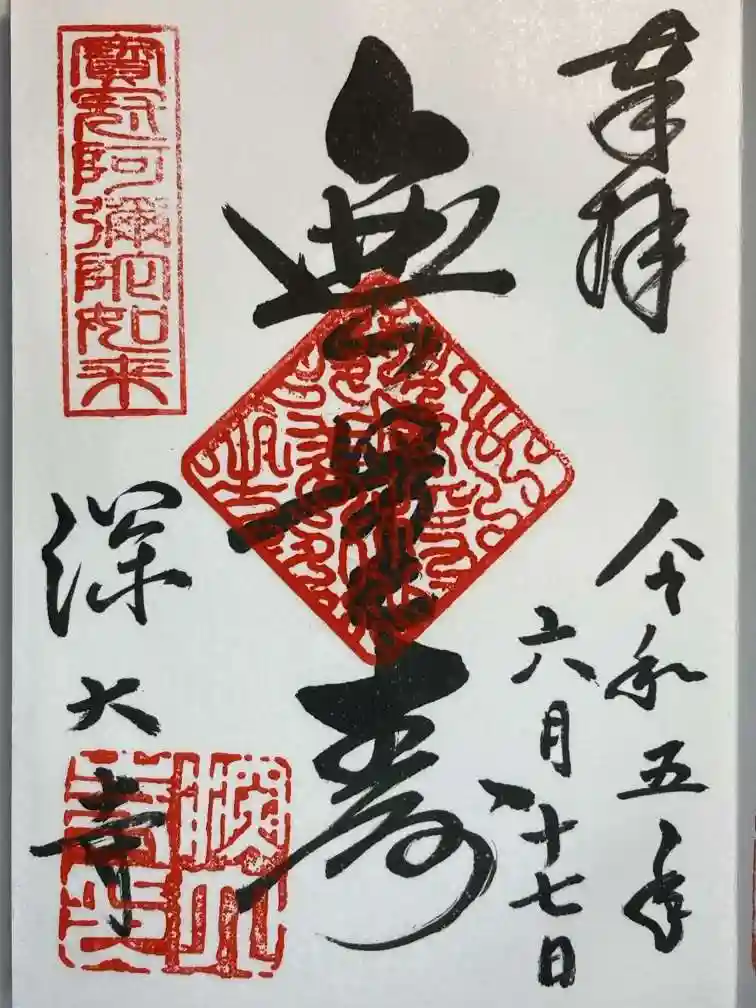 奉拝
令和五年
六月十七日
無量寿
寶冠阿彌陀如来
深大寺